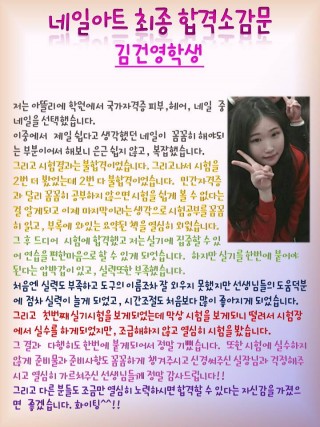 네일아트 최종 합격소감문
김건영학생
저는 아뜰리에 학원에서 국가자격증 피부,헤어, 네일 중
네일을 선택했습니다.
이중에서 제일 쉽다고 생각했던 네일이 꼼꼼히 해야되
는 부분이어서 해보니 은근 쉽지 않고, 복잡했습니다.
그리고 시험결과는 불합격이었습니다. 그리고나서 시험을
2번 더 봤었는데 2번 다 불합격이었습니다. 민간자격증
과 달리 꼼꼼히 공부하지 않으면 시험을 쉽게 볼 수 없다는
걸 알게되고 이제 마지막이라는 생각으로 시험공부를 꼼꼼
히 읽고, 부록에 와 있는 요약된 책을 열심히 외웠습니다.
그 후 드디어 시험에 합격했고 저는 실기에 집중할 수 있
어 연습을 편한마음으로 할 수 있게 되었습니다. 하지만 실기를 한번에 붙어야
된다는 압박감이 있고, 실력또한 부족했습니다.
처음엔 실력도 부족하고 도구의 이름조차 잘 외우지 못했지만 선생님들의 도움덕분
에 점차 실력이 늘게 되었고, 시간조절도 처음보다 많이 좋아지게 되었습니다.
그리고 첫번째 실기시험을 보게되었는데 막상 시험을 보게되니 떨려서 시험장
에서 실수를 하게되었지만, 조급해하지 않고 열심히 시험을 봤습니다.
그 결과 다행히도 한번에 붙게되어서 정말 기뻤습니다. 또한 시험에 실수하지
않게 준비물과 준비사항도 꼼꼼하게 챙겨주시고 신경써주신 실장님과 걱정해주
시고 열심히 가르쳐주신 선생님들께 정말 감사드립니다!!
그리고 다른 분들도 조금만 열심히 노력하시면 합격할 수 있다는 자신감을 가졌으
면 좋겠습니다. 화이팅^^!!